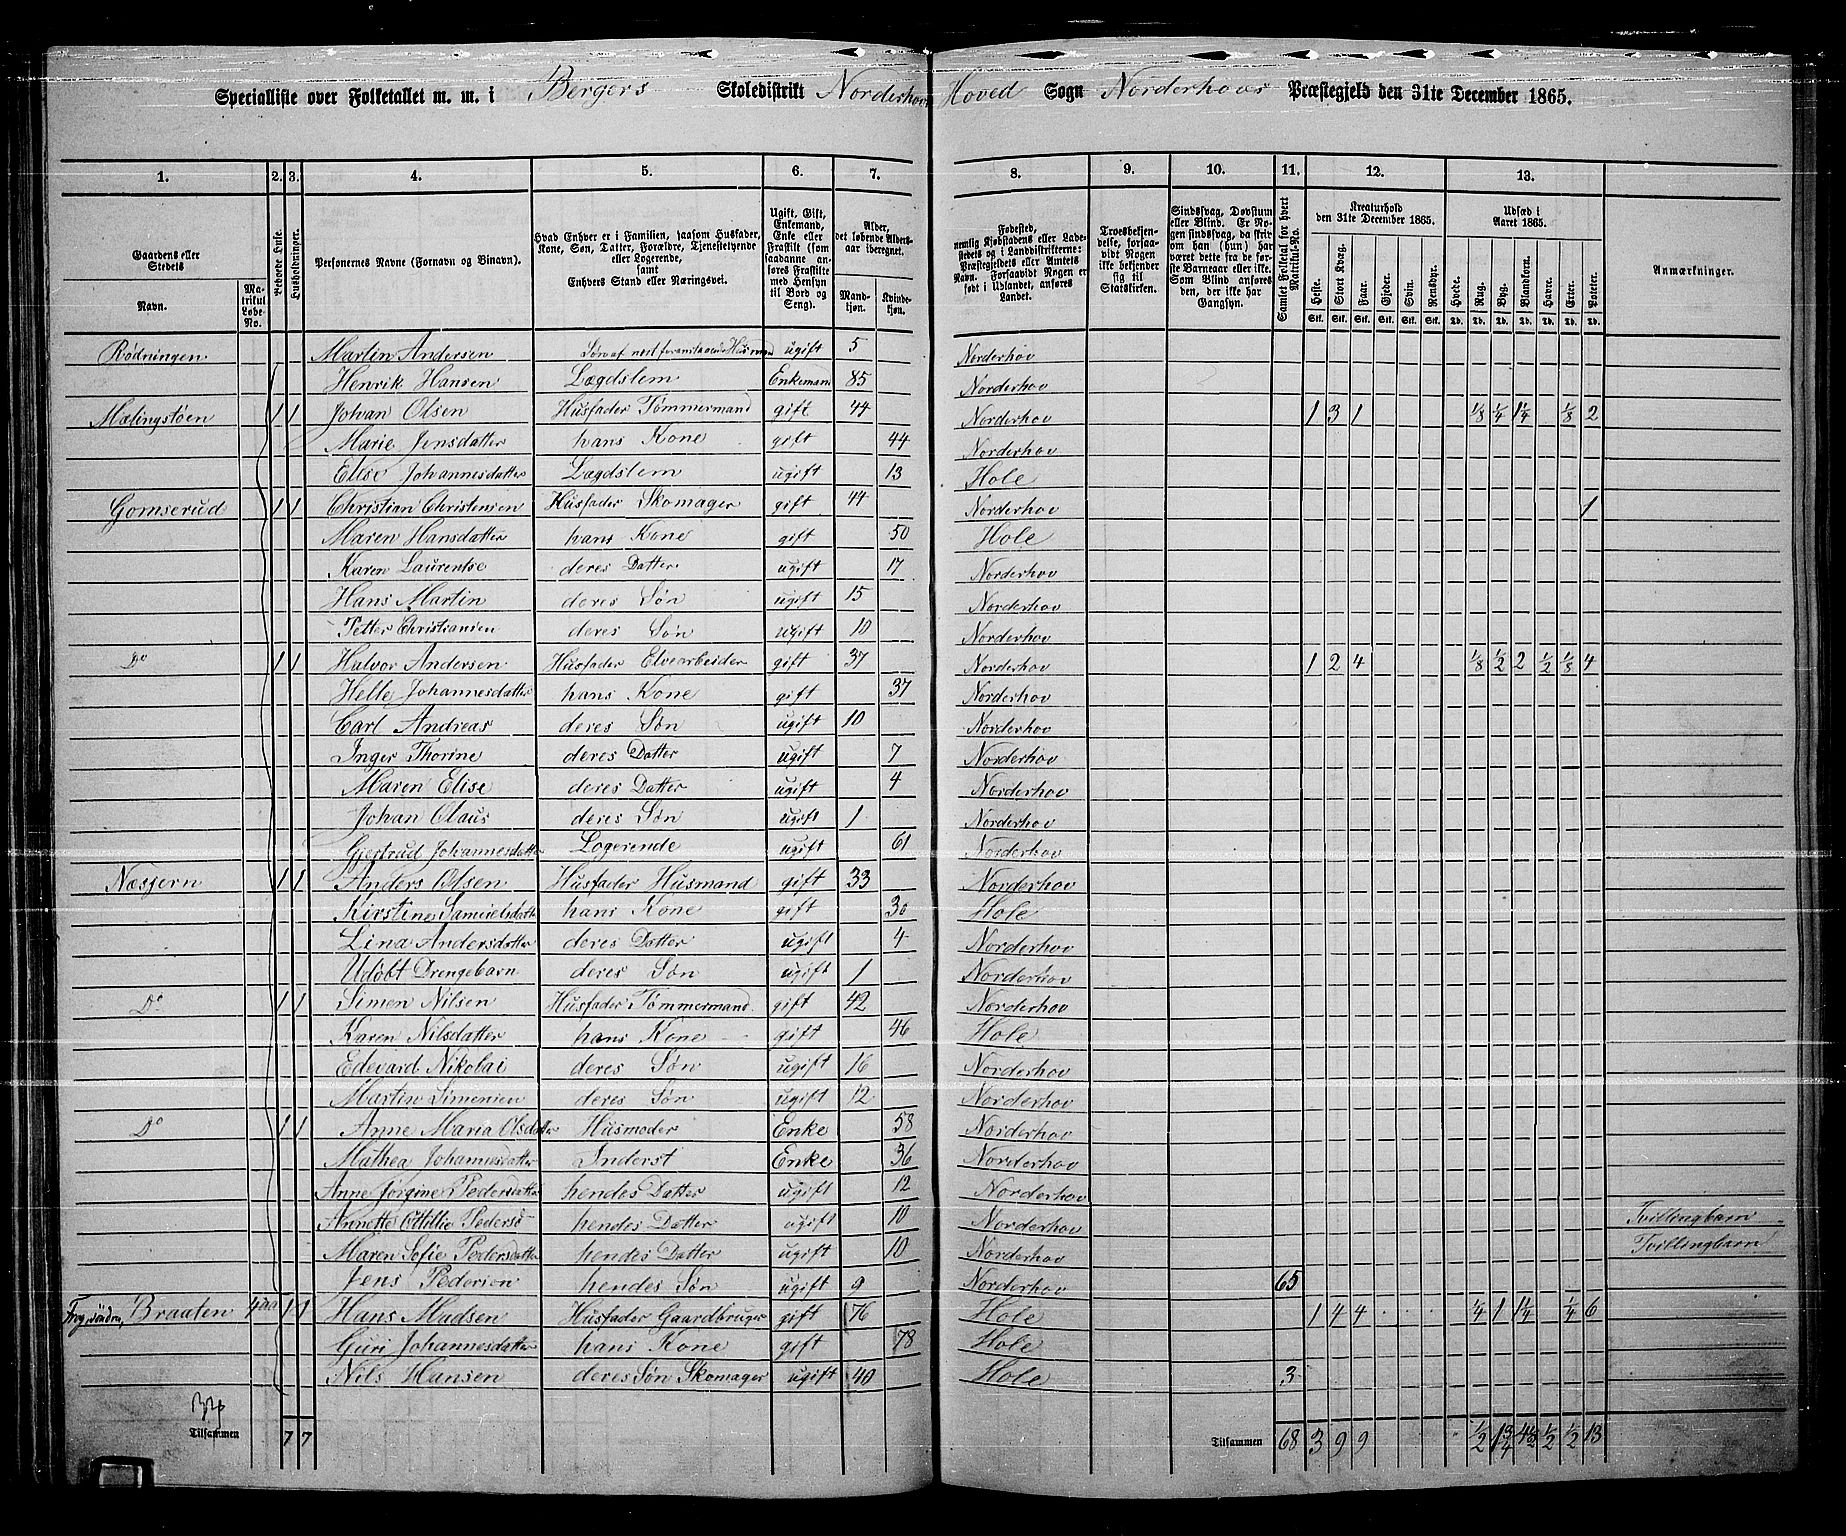 Specialliste over Folketallet m. m. i Bergers Skoledistrikt Norderhov Hoved Sogn Norderhovs Præstegjeld den 31te December 1865.
1. 2. 3. 4. 5. 6. 7. 8. 9. 10. 11. 12. 13.
Gaardens eller Stedets Navn. Matrikul Løbe-No. Beboede Huse. Husholdninger. Personernes Navne (Fornavn og Binavn). Hvad Enhver er i Familien, saasom Husfader, Kone, Søn, Datter, Forældre, Tjenestetydende eller Logerende, samt Enhvers Stand eller Næringsvei. Ugift, Gift, Enkemand, Enke eller Fraskilt (som saadanne anføres Fraskilte med Hensyn til Bord og Seng). Alder, det løbende Aldersaar iberegnet. Mandkjøn. Kvindekjøn. Fødested, nemlig Kjøbstadens eller Ladestedets og i Landdistrikterne: Præstegjeldets eller Amtets Navn. Forsaavidt Nogen er født i Udlandet, anføres Landet. Troesbekjendelse, forsaavidt Nogen ikke bekjender sig til Statskirken. Sindssvag, Døvstum eller Blind. Er Nogen sindssvag, da skrives om han (hun) har været dette fra de første Barneaar eller ikke. Som Blind anføres den, der ikke har Gangsyn. Samlet Folketal for hvert Matrikul-No. Kreaturhold den 31te December 1865. Heste. Stort Kvæg. Faar. Gjeder. Svin. Rensdyr. Udsæd i Aaret 1865. Hvede. Rug. Byg. Blandkorn. Havre. Erter. Poteter. Anmærkninger.
Rødningen Martin Andersen Søn af næst foranstaaende Husmand ugift 5 Norderhov
Henrik Hansen Lægdslem Enkemand 85 Norderhov
Mælingstøen 1 1 Johan Olsen Husfader Tømmermand gift 44 Norderhov 1 3 1 1/8 1/4 1 1/4 1/8 2
Marie Jensdatter hans Kone gift 44 Norderhov
Elise Johannesdatter Lægdslem ugift 13 Hole
Gomserud 1 1 Christian Christensen Husfader Skomager gift 44 Norderhov 1
Maren Hansdatter hans Kone gift 50 Hole
Karen Laurentse deres Datter ugift 17 Norderhov
Hans Martin deres Søn ugift 15 Norderhov
Petter Christiansen deres Søn ugift 10 Norderhov
Do 1 1 Halvor Andersen Husfader Elvearbeider gift 37 Norderhov 1 2 4 1/8 1/2 2 1/2 1/8 4
Helle Johannesdatter hans Kone gift 37 Norderhov
Carl Andreas deres Søn ugift 10 Norderhov
Inger Thorine deres Datter ugift 7 Norderhov
Maren Elise deres Datter ugift 4 Norderhov
Johan Olaus deres Søn ugift 1 Norderhov
Gjertrud Johannesdatter Logerende ugift 61 Norderhov
Næsjern 1 1 Anders Olsen Husfader Husmand gift 33 Norderhov
Kirstine Samuelsdatter hans Kone gift 30 Hole
Lina Andersdatter deres Datter ugift 4 Norderhov
Udøbt Drengebarn deres Søn ugift 1 Norderhov
Do 1 1 Simen Nilsen Husfader Tømmermand gift 42 Norderhov
Karen Nilsdatter hans Kone gift 46 Hole
Edevard Nikolai deres Søn ugift 16 Norderhov
Martin Simensen deres Søn ugift 12 Norderhov
Do 1 1 Anne Maria Olsdatter Husmoder Enke 58 Norderhov
Mathea Johannesdatter Inderst Enke 36 Norderhov
Anne Jørgine Pedersdatter hendes Datter ugift 12 Norderhov
Annette Ottilie Pedersd hendes Datter ugift 10 Norderhov Tvillingbarn
Maren Sofie Pedersdatter hendes Datter ugift 10 Norderhov Tvillingbarn
Jens Pedersen hendes Søn ugift 9 Norderhov 65
Braaten 1 1 Hans Madsen Husfader Gaardbruger gift 76 Hole 1 4 4 1/4 1 1 1/4 1/4 6
Guri Johannesdatter hans Kone gift 78 Hole
Nils Hansen deres Søn Skomager ugift 40 Hole 3
Tilsammen 7 7 Tilsammen 68 3 9 9 1/2 1 3/4 4 1/2 1/2 1/2 13